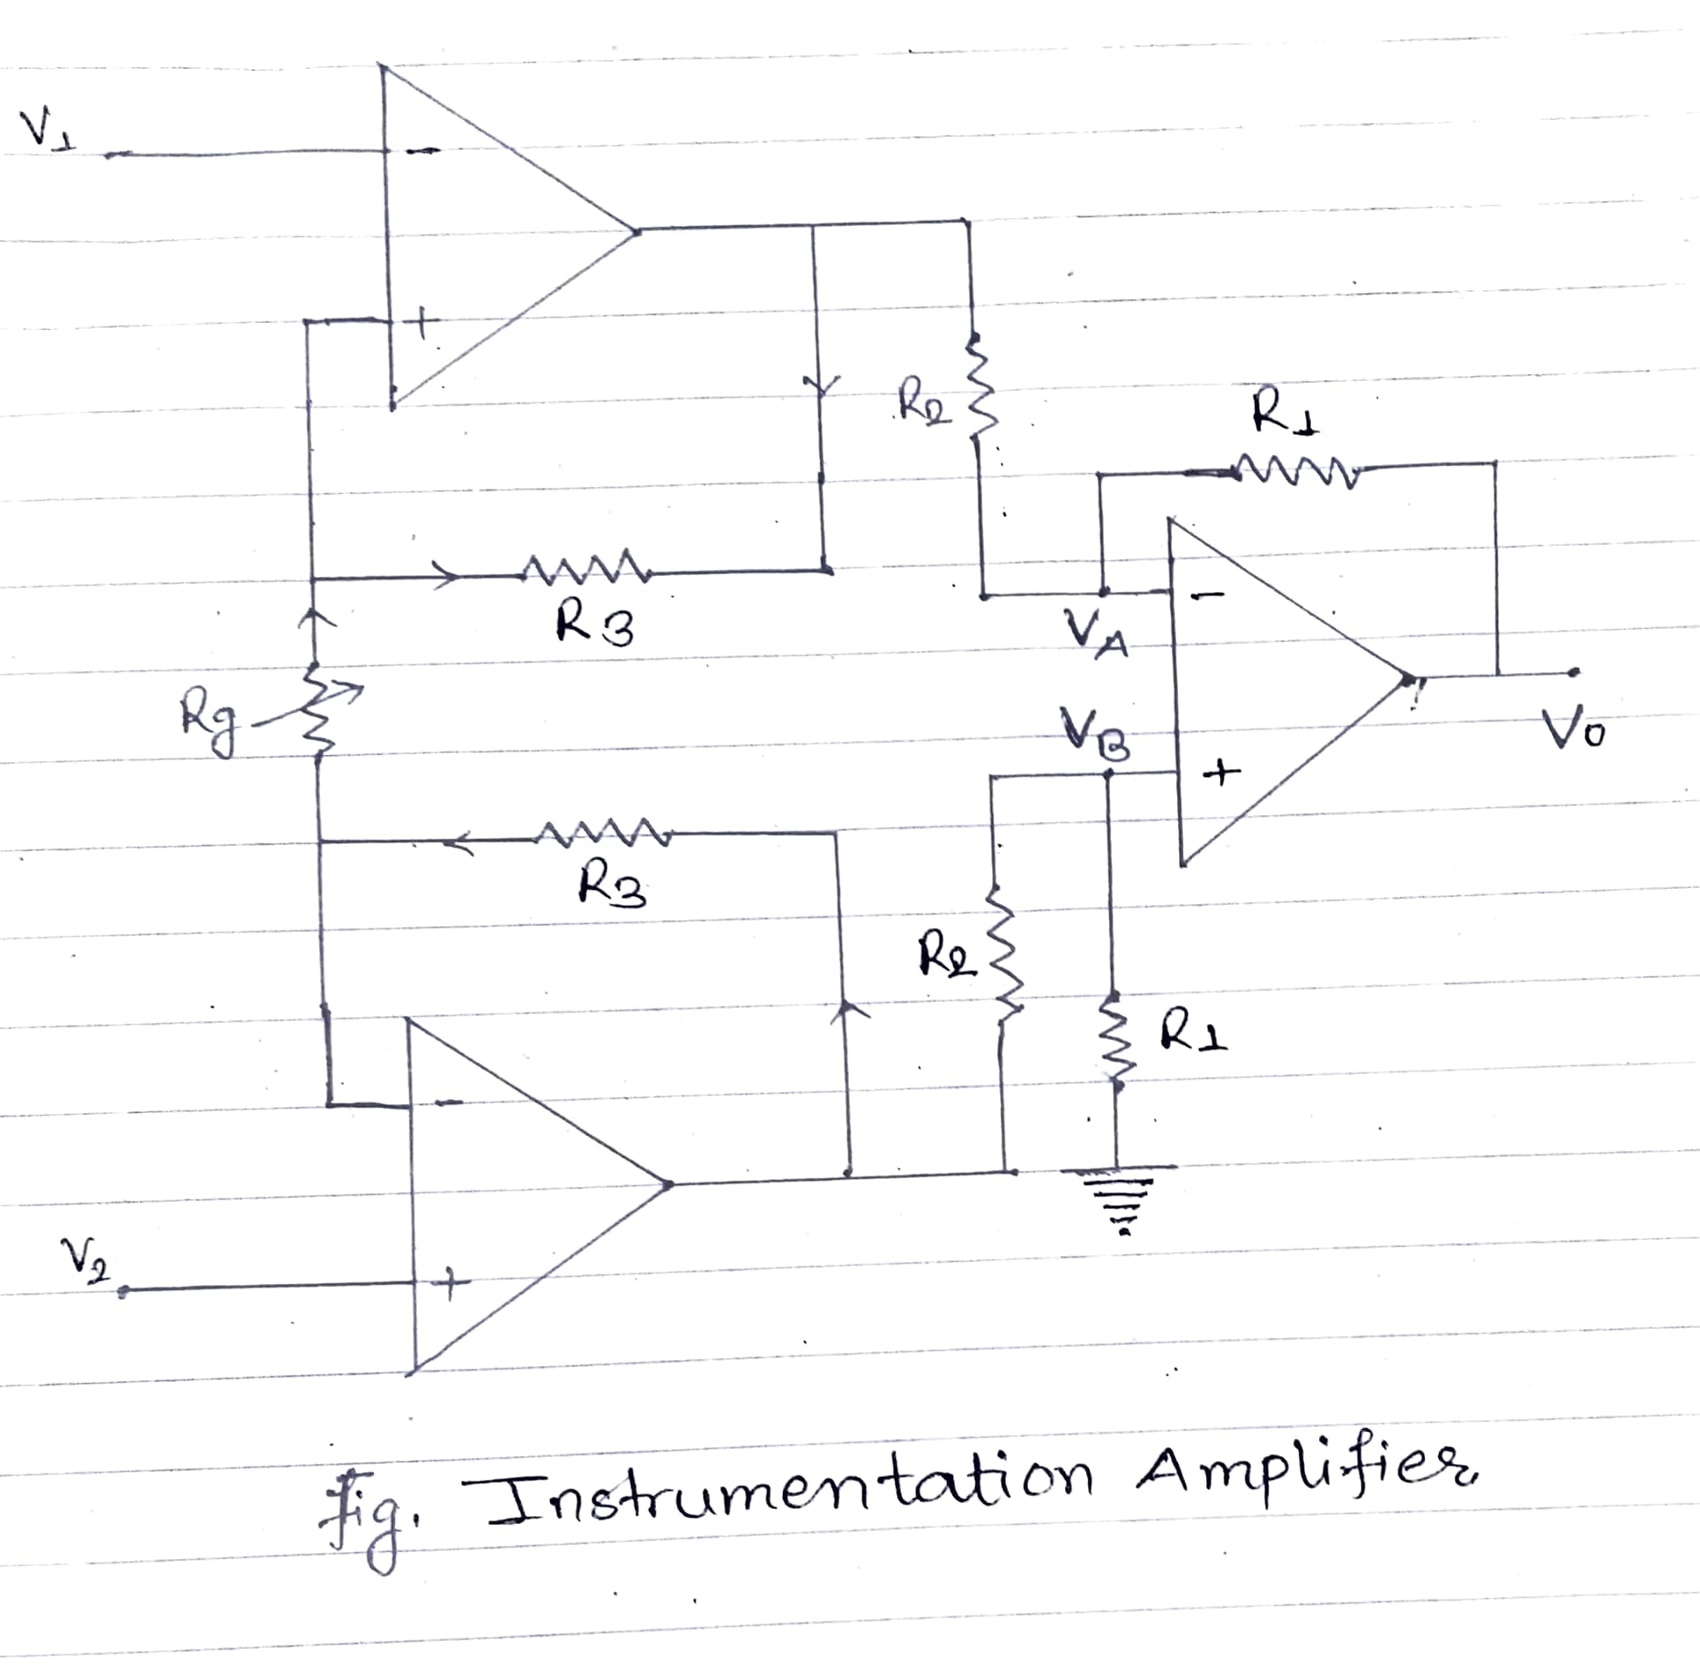 V1
-
+
R2
R1
R3
-
VA
Rg
VB
V0
+
R3
R2
R1
-
V2
+
fig. Instrumentation Amplifier